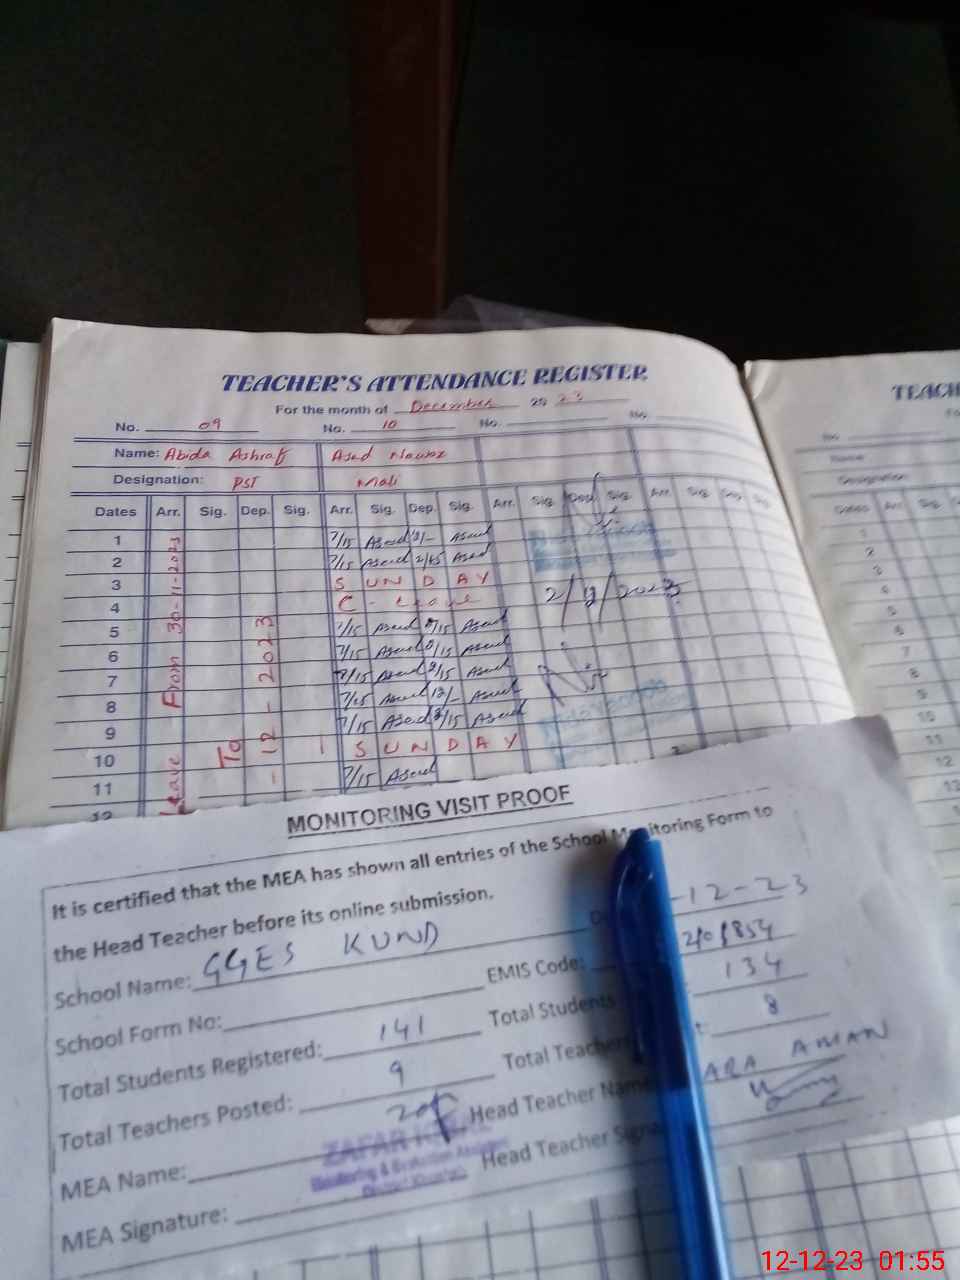 TEACHER'S ATTENDANCE REGISTER
For the month of December 2023
No. 09 No. 10 No. No.
Name: Abida Ashraf Asad Nawaz
Designation: PST Mali
Dates Arr. Sig. Dep. Sig. Arr. Sig. Dep. Sig. Arr. Sig. Dep. Sig. Arr. Sig. Dep. Sig.
1 7/15 Asad 12/- Asad
2 7/15 Asad 2/45 Asad
3 SUNDAY
4 C - Leave 2/ /2023
5 7/15 Asad /15 Asad
6 7/15 Asad /15 Asad
7 7/15 Asad 2/15 Asad
8 7/15 Asad 12/- Asad
9 7/15 Asad 2/15 Asad
10 SUNDAY
11 7/15 Asad
12
Leave From 30-11-2023
To
-12-2023
TEACH
Name
Designation
Dates Arr. Sig.
2
3
4
5
6
7
8
9
10
11
12
13
MONITORING VISIT PROOF
It is certified that the MEA has shown all entries of the School Monitoring Form to
the Head Teacher before its online submission. -12-23
School Name: GGES KUND EMIS Code:
School Form No: Total Students 134
Total Students Registered: 141 Total Teachers 8
Total Teachers Posted: 9 Head Teacher Name ARA AMAN
MEA Name: ZAFAR Head Teacher Signa
Monitoring & Evaluation
MEA Signature:
12-12-23 01:55